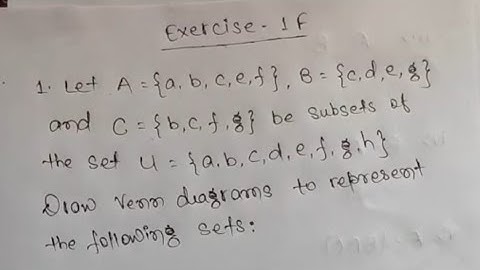 Exercise - 1F
1. Let A = {a, b, c, e, f}, B = {c, d, e, g}
and C = {b, c, f, g} be subsets of
the set U = {a, b, c, d, e, f, g, h}
Draw Venn diagrams to represent
the following sets: